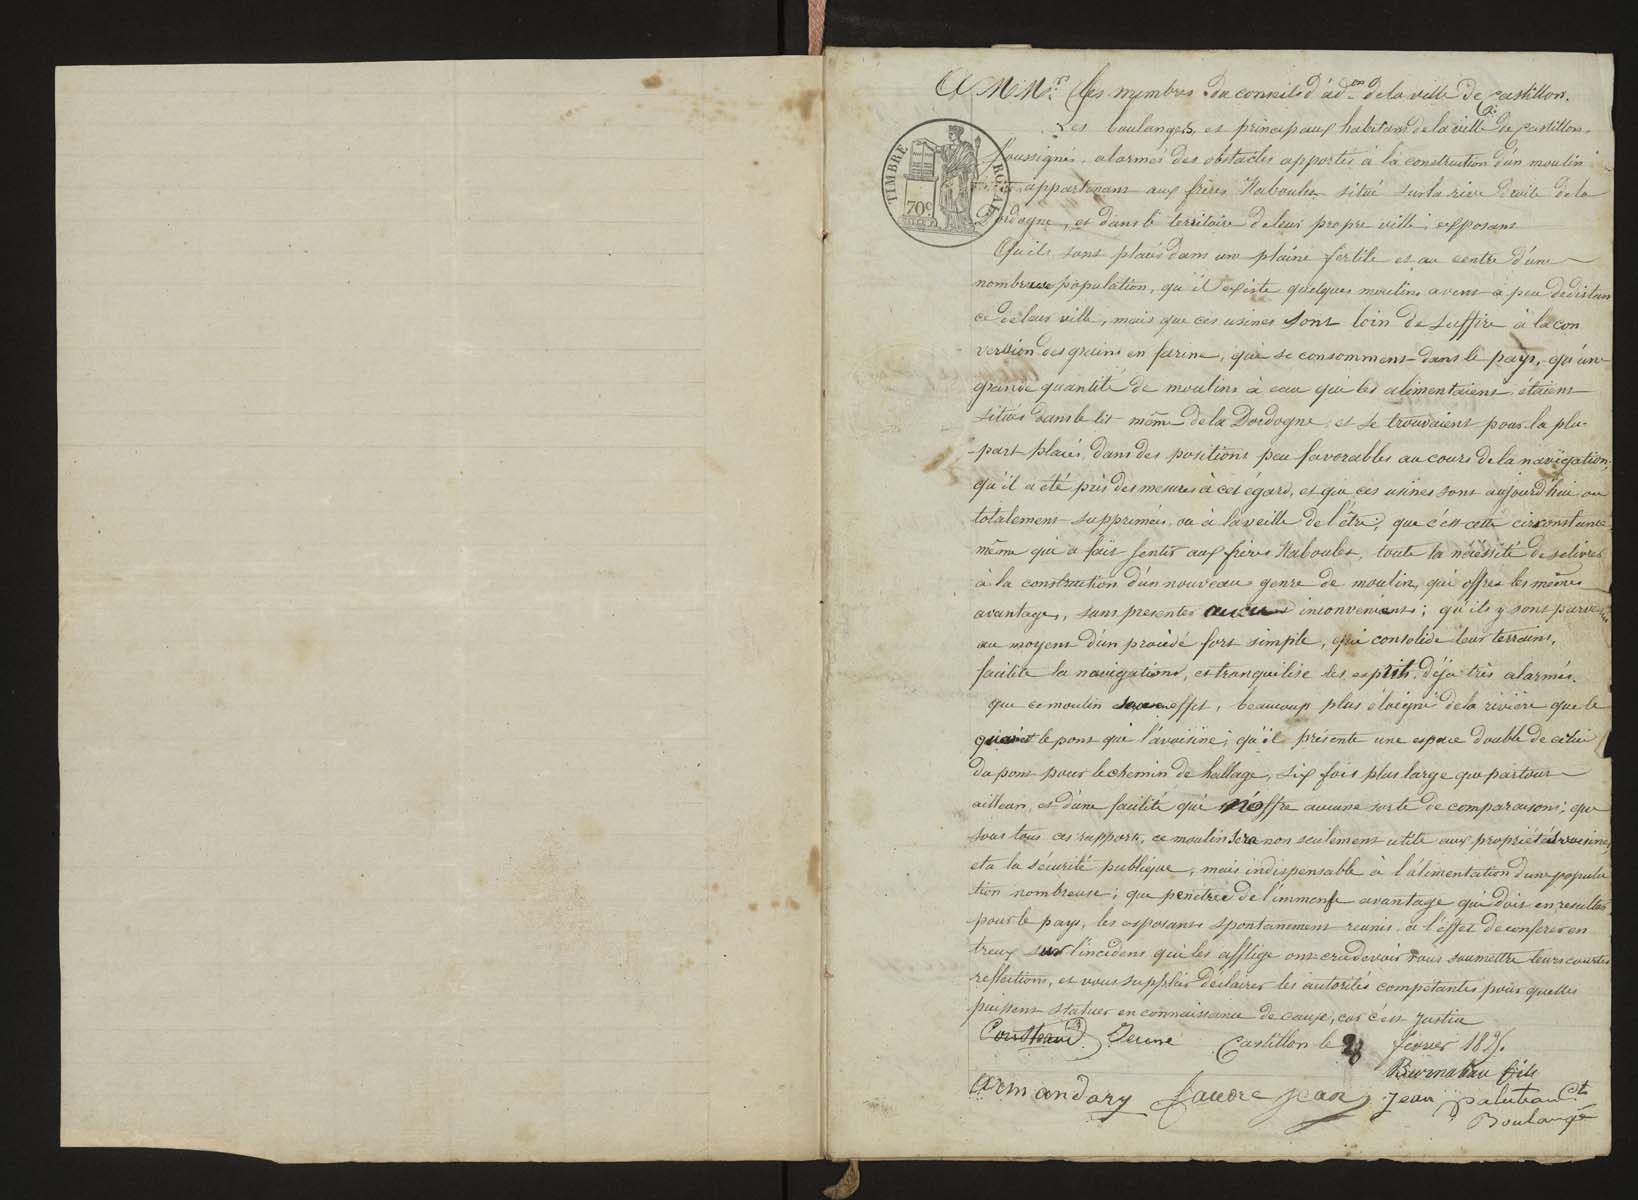 A MM.rs les membres du conseil d'ad.on de la ville de Castillon.
Les boulangers, et principaux habitans de la ville de Castillon
TIMBRE ROYAL
70c
soussignés, alarmés des obstacles apportés à la construction d'un moulin
appartenant aux frères Naboulet situé sur la rive droite de la
Dordogne, et dans le territoire de leur propre ville, exposent
Qu'ils sont placés dans une plaine fertile et au centre d'une
nombreuse population, qu'il existe quelques moulins à vent à peu de distan
ce de leur ville, mais que ces usines sont loin de suffire à la con
version des grains en farine, qui se consomment dans le pays, qu'une
grande quantité de moulins à eau qui les alimentaient étaient
situés dans le lit même de la Dordogne, et se trouvaient pour la plu-
-part placés, dans des positions peu favorables au cours de la navigation;
qu'il a été pris des mesures à cet égard, et que ces usines sont aujourd'hui ou
totalement supprimées, ou à la veille de l'être; que c'est cette circonstance
même qui a fait sentir aux frères Naboulet, toute la nécessité de se livrer
à la construction d'un nouveau genre de moulin, qui offrit les mêmes
avantages, sans présenter aucun inconvenient; qu'ils y sont parvenus
au moyens d'un procédé fort simple, qui consolide leur terrains,
facilite la navigation, et tranquilise les esprits, déjà très alarmés.
que ce moulin effet, beaucoup plus éloigné de la rivière que le
quai et le pont qui l'avoisine; qu'il présente une espace double de celui
du pont pour le chemin de hallage, six fois plus large que partout
ailleurs, et d'une facilité qui n'offre aucune sorte de comparaison; que
sous tous ces rapports, ce moulin sera non seulement utile aux propriétés voisines,
et a la sécurité publique, mais indispensable à l'alimentation d'une popula
tion nombreuse; que penetrée de l'immense avantage qui doit en resulter
pour le pays, les exposants spontanement reunis à l'effet de conferer en
treux sur l'incident qui les afflige ont cru devoir vous soumettre leurs courtes
reflections, et vous supplier d'éclairer les autorités compétantes pour quelles
puissent statuer en connaissance de cause, car c'est justice
Castillon le 28 février 1825.
Armandary Faure Jean Jean
Boulangé